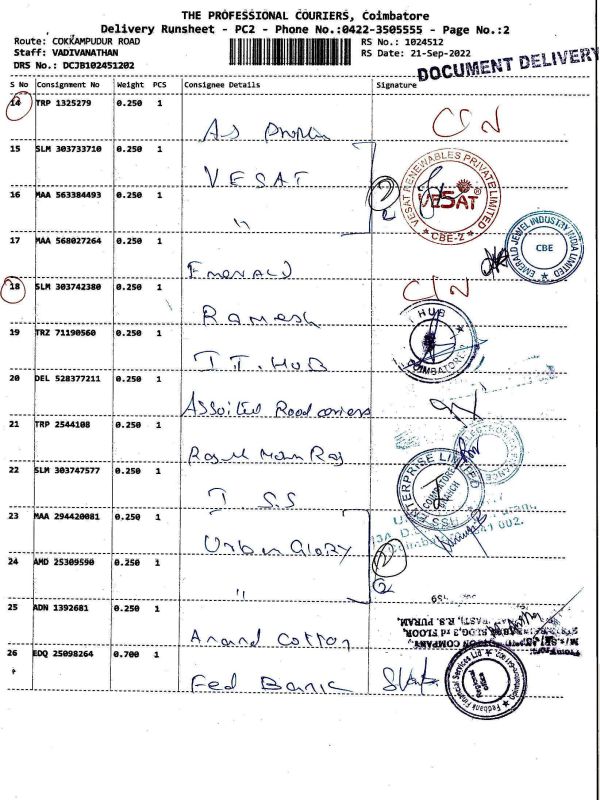 THE PROFESSIONAL COURIERS, Coimbatore
Delivery Runsheet - PC2 - Phone No.:0422-3505555 - Page No.:2
Route: COKKAMPUDUR ROAD
RS No.: 1024512
Staff: VADIVANATHAN
RS Date: 21-Sep-2022
DRS No.: DCJB102451202
DOCUMENT DELIVERY
S No Consignment No Weight PCS Consignee Details Signature
14 TRP 1325279 0.250 1
AS
15 SLM 303733710 0.250 1
VESAT
VESAT RENEWABLES PRIVATE LIMITED
VESAT
CBE-2
16 MAA 563384493 0.250 1
"
2
17 MAA 568027264 0.250 1
Emerald
EMERALD JEWEL INDUSTRY INDIA LIMITED
CBE
18 SLM 303742380 0.250 1
Ramesh
19 TRZ 71190560 0.250 1
I T. HUB
HUB
COIMBATORE
20 DEL 528377211 0.250 1
Road
21 TRP 2544108 0.250 1
22 SLM 303747577 0.250 1
I S.S
ENTERPRISE LIMITED
COIMBATORE
BRANCH
23 MAA 294420081 0.250 1
Urban Glory
24 AMD 25309590 0.250 1
"
2
25 ADN 1392681 0.250 1
Anand Cotton
COMPANY
3rd FLOOR,
R.S. PURAM,
26 EDQ 25098264 0.700 1
Fed Bank
Fedbank Financial Services Ltd